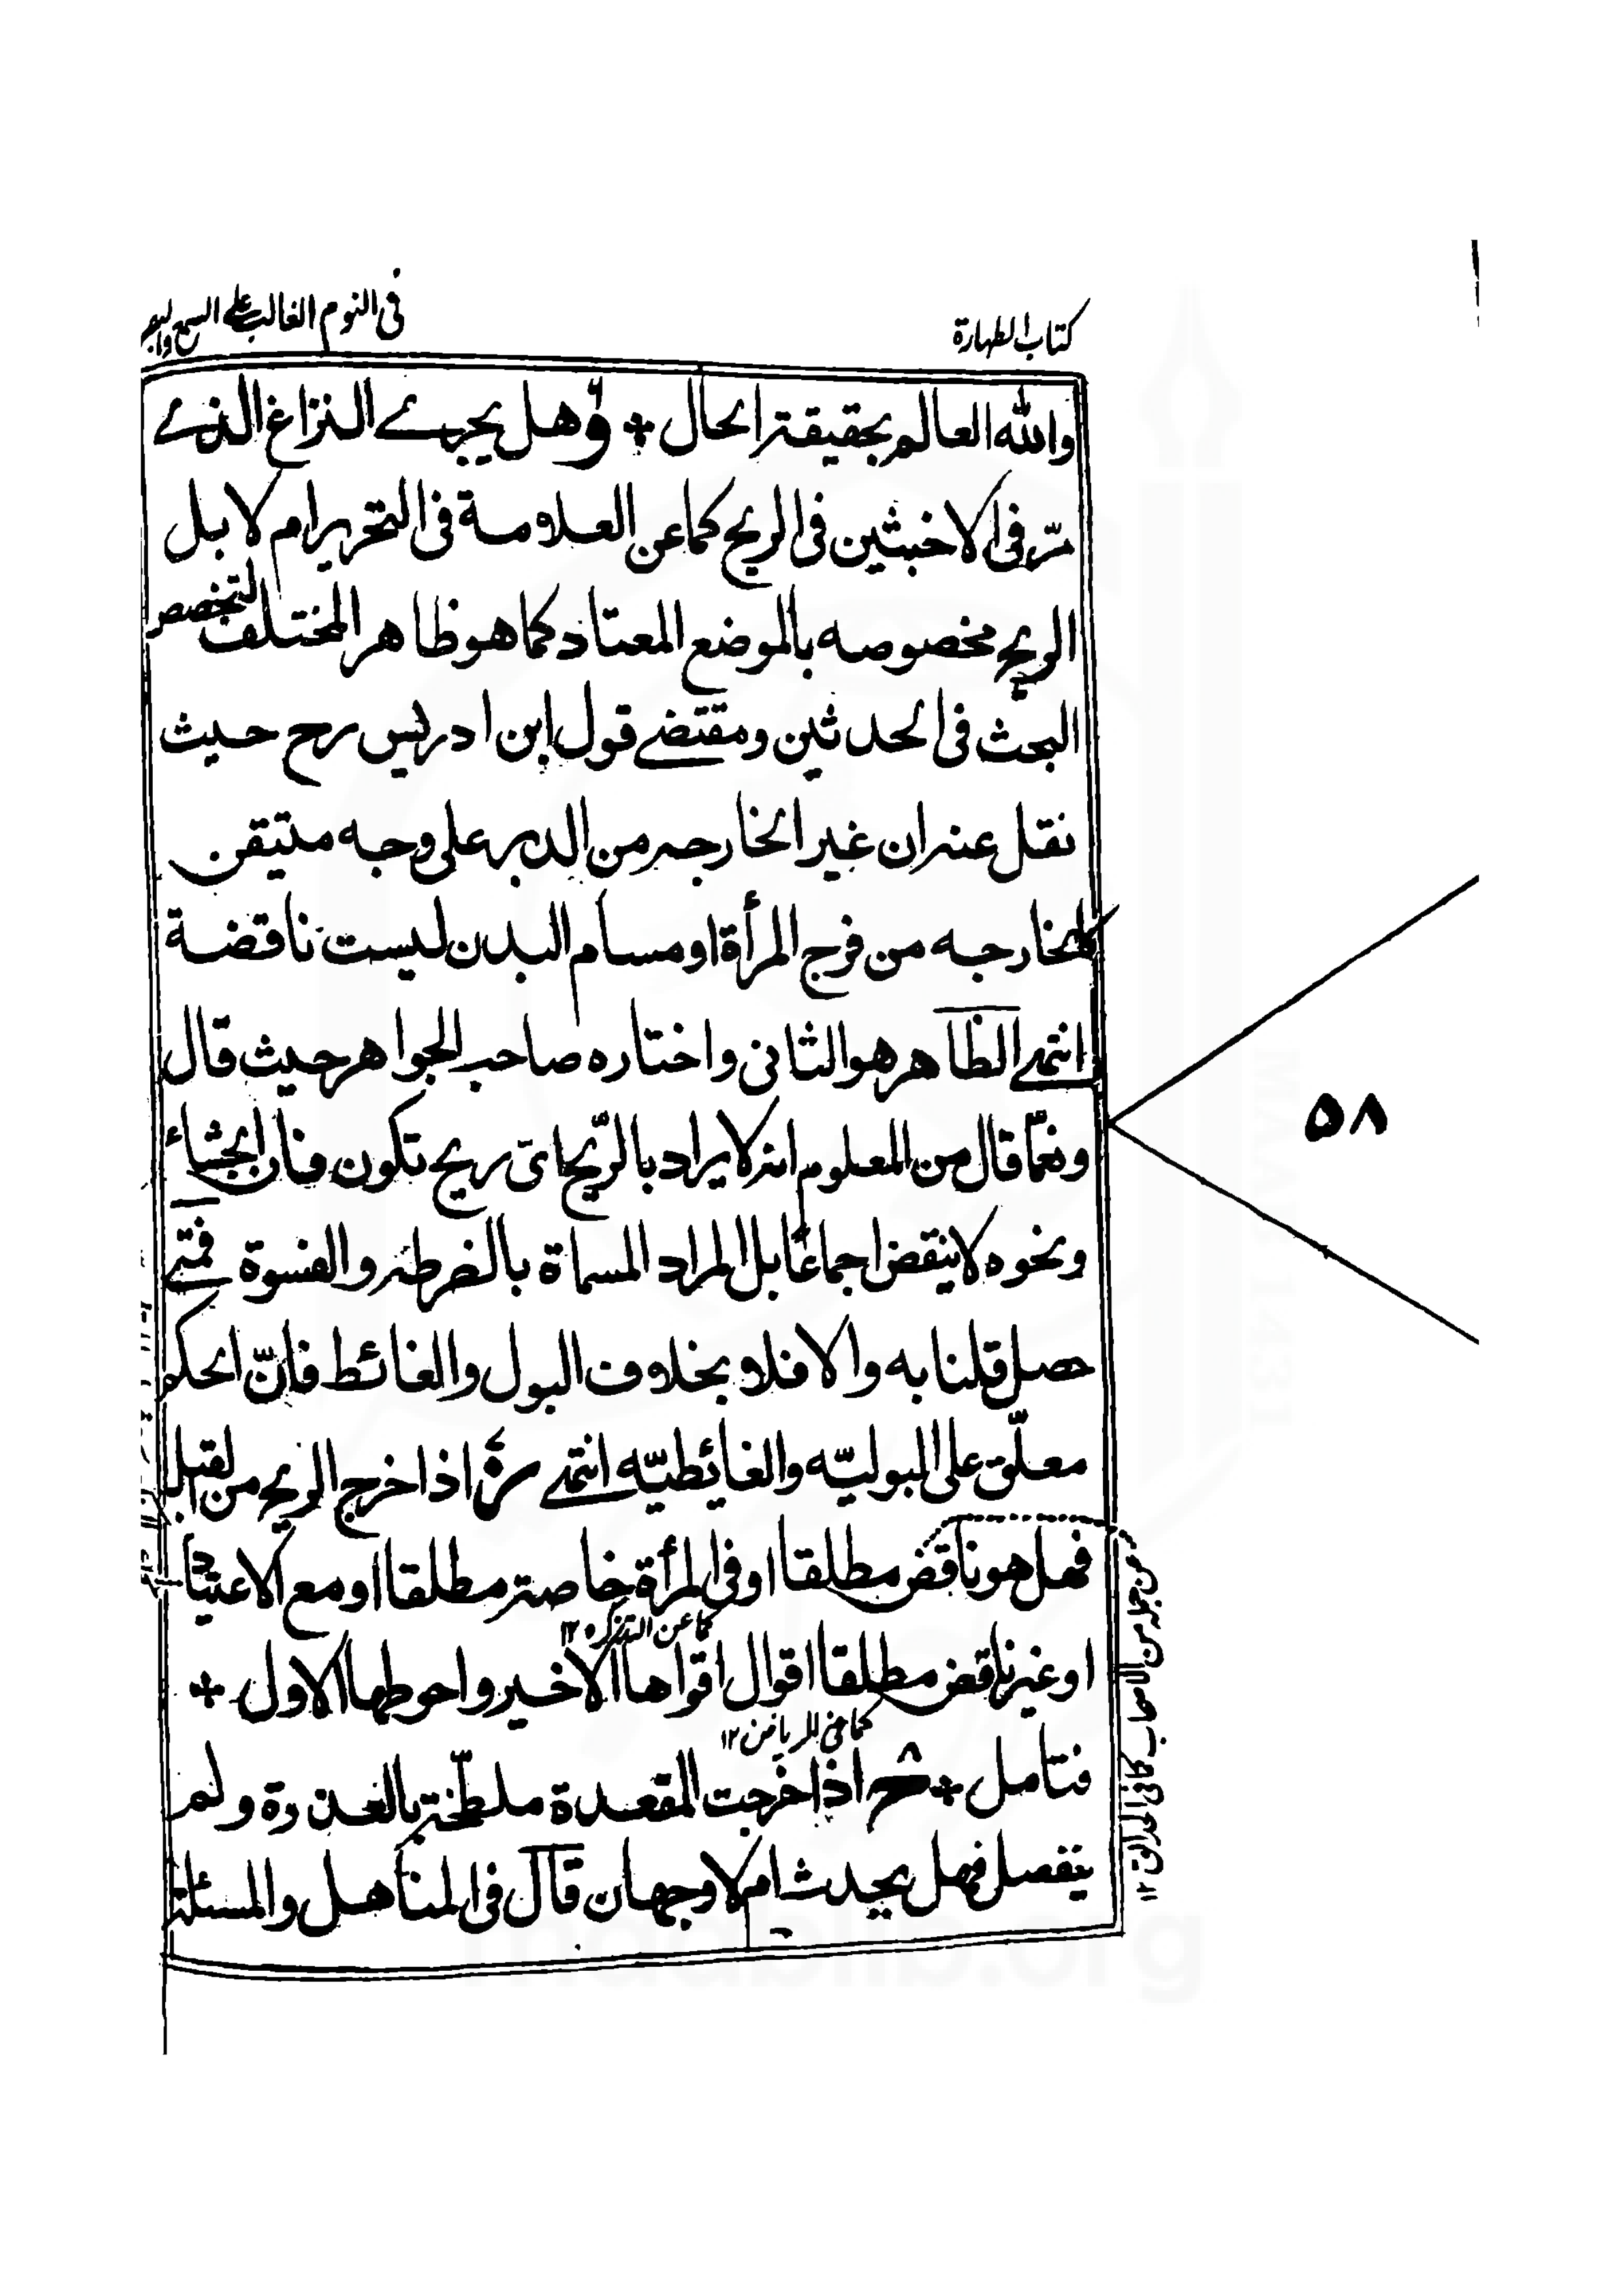 كتاب الطهارة
فى النوم الغالب على السمع والبصر
والله العالم بحقيقة الحال + وهل يجرى النزاع الذى
مرّ فى الاخبثين فى الريح كما عن العلامة فى التحرير ام لا بل
الريح مخصوصه بالموضع المعتاد كما هو ظاهر المختلف لتخصص
البحث فى الحدثين ومقتضى قول ابن ادريس رح حيث
نقل عنه ان غير الخارجه من الدبر على وجه متيقن
كالخارجه من فرج المرأة او مسام البدن ليست ناقضة
انتهى الظاهر هو الثانى واختاره صاحب الجواهر حيث قال
ونعمّا قال من المعلوم انه لا يراد بالرّيح اىّ ريح تكون فان الجشاء
ونحوه لا ينقض اجماعًا بل المراد المسماة بالضرطه والفسوة فمتى
حصل قلنا به والا فلا بخلاف البول والغائط فانّ الحكم
معلّق على البوليّه والغائيطيّه انتهى اذا خرج الريح من القبل
فهل هو ناقض مطلقا او فى المرأة خاصة مطلقا او مع الاعتياد
كما عن التذكره ١٢
او غير ناقض مطلقا اقوال اقواها الاخير واحوطها الاول +
كما فى الرياض ١٢
فتامل + اذا خرجت المقعدة ملطخة بالعذرة ولم
ينفصل فهل يحدث ام لا وجهان قال فى المناهل والمسئلة
من جمله من الاصحاب كما فى الحدائق ١٢
٥٨